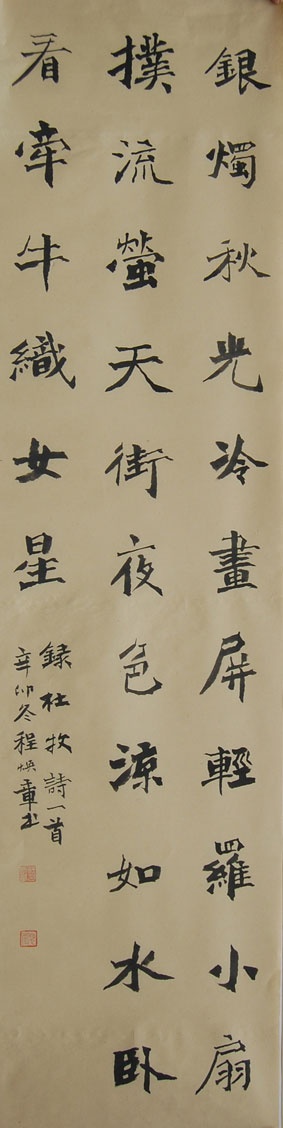 銀燭秋光冷畫屏輕羅小扇
撲流螢天街夜色涼如水卧
看牽牛織女星
録杜牧詩一首
辛卯冬程焕章书